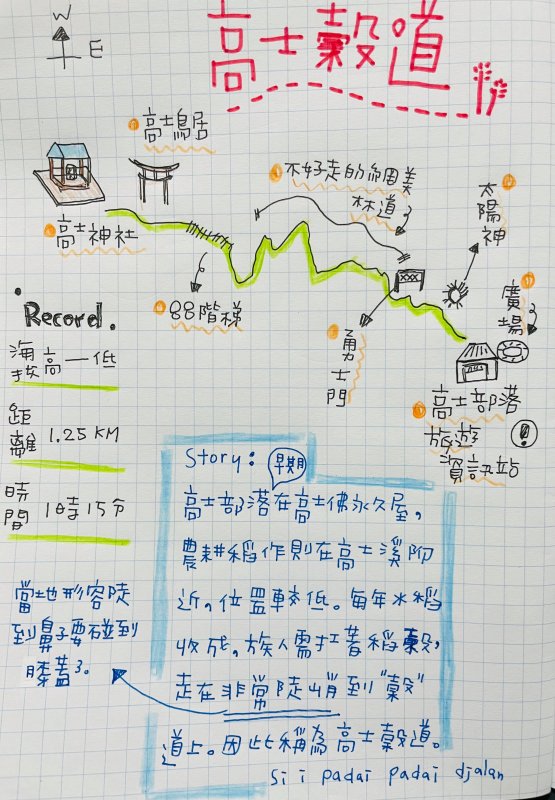 高士穀道
W
E
高士鳥居
不好走的絕美
林道
太陽神
高士神社
88階梯
勇士門
廣場
高士部落
旅遊
資訊站
Record.
海拔高一低
距離 1.25 KM
時間 1時15分
Story:
早期
高士部落在高士佛永久屋,
農耕稻作則在高士溪附
近,位置較低。每年水稻
收成,族人需扛著稻穀,
走在非常陡峭到"穀"
道上。因此稱為高士穀道。
si i padai padai djalan
當地形容陡
到鼻子要碰到
膝蓋了。